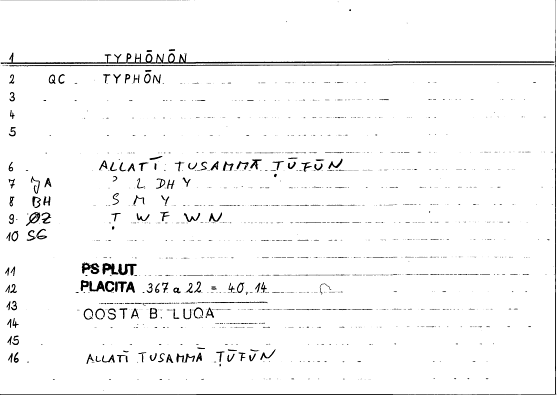 1 TYPHŌNŌN
2 QC TYPHŌN
3
4
5
6 ALLATĪ TUSAMMĀ ṬŪFŪN
7 JA ʾ L DH Y
8 BH S M Y
9 ØZ Ṭ W F W N
10 SG
11 PS PLUT
12 PLACITA 367 a 22 = 40,14
13
14 QOSTA B. LUQA
15
16 ALLATĪ TUSAMMĀ ṬŪFŪN